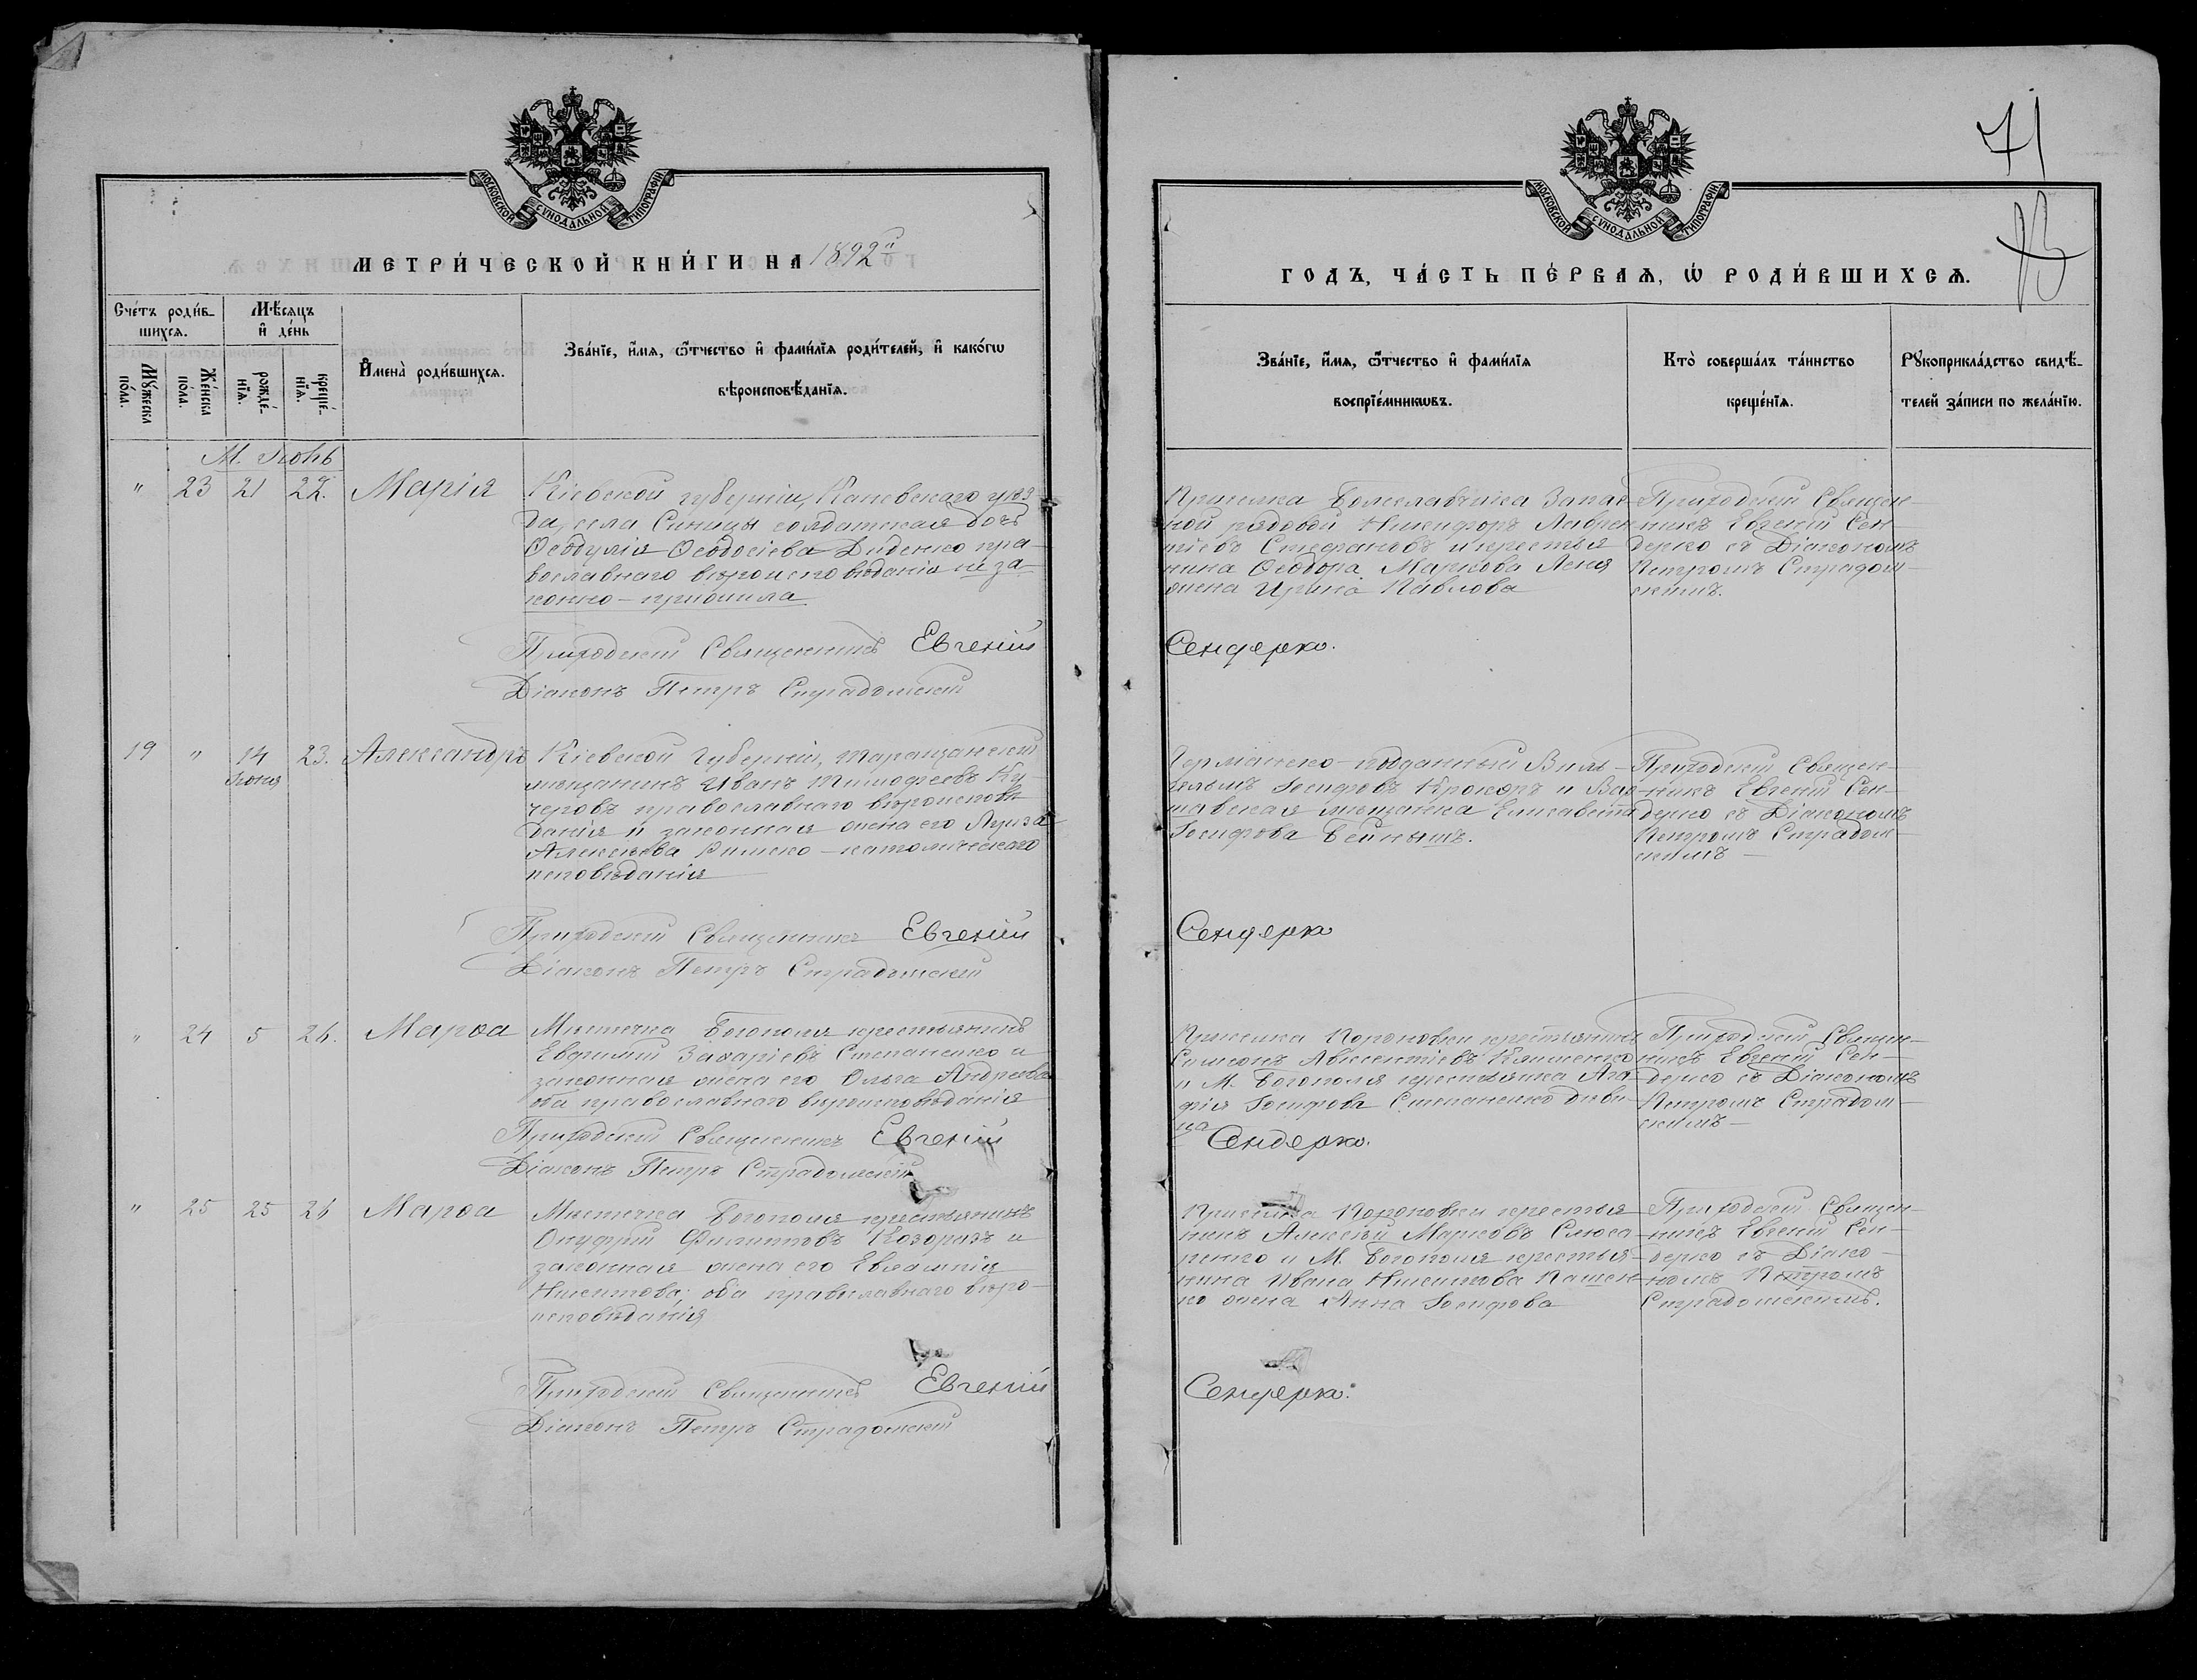 МОСКОВСКОЙ СѴНОДАЛЬНОЙ ТИПОГРАФІИ
МЕТРИ́ЧЕСКОЙ КНИ́ГИ НА 1892й
Сче́тъ роди́в-
шихсѧ.
Мѣ́сѧцъ
и҆ де́нь
Мꙋ́жеска
по́ла.
Же́нска
по́ла.
рожде́-
нїѧ.
креще́-
нїѧ.
И҆мена̀ роди́вшихсѧ.
Зва́нїе, и҆́мѧ, ѻ҆́тчество и҆ фами́лїѧ роди́телей, и҆ како́гѡ
вѣроисповѣ́данїѧ.
М. Іюнь
" 23 21 22. Марія
Кіевской губерніи, Каневскаго уѣз-
да, села Синицы солдатская дочь
Ѳеодулія Ѳеодосіева Диденко пра-
вославнаго вѣроисповѣданія неза-
конно-прижила
Приходскій Священникъ Евгеній
Діаконъ Петръ Страдомскій
19 " 14 Іюня 23. Александръ
Кіевской Губерніи, Таращанскій
мѣщанинъ Иванъ Тимофеевъ Ку-
черовъ православнаго вѣроисповѣ-
данія и законная жена его Луиза
Алексѣева Римско-католическаго
исповѣданія
Приходскій Священникъ Евгеній
Діаконъ Петръ Страдомскій
" 24 5 26. Марѳа
Мѣстечка Богополя крестьянинъ
Евфимій Захаріевъ Степаненко и
законная жена его Ольга Андреева
оба православнаго вѣроисповѣданія
Приходскій Священникъ Евгеній
Діаконъ Петръ Страдомскій
" 25 25 26 Марѳа
Мѣстечка Богополя крестьянинъ
Онуфрій Филипповъ Козоризъ и
законная жена его Евлампія
Никитова; оба православнаго вѣро-
исповѣданія
Приходскій Священникъ Евгеній
Діаконъ Петръ Страдомскій
71
МОСКОВСКОЙ СѴНОДАЛЬНОЙ ТИПОГРАФІИ
ГОДЪ, ЧА́СТЬ ПЕ́РВАѦ, Ѡ҆ РОДИ́ВШИХСѦ.
Зва́нїе, и҆́мѧ, ѻ҆́тчество и҆ фами́лїѧ
воспрїе́мникѡвъ.
Кто̀ соверша́лъ та́инство
креще́нїѧ.
Рꙋкоприкла́дство свидѣ́-
телей за́писи по жела́нїю.
Приселка Болеславчика Запас-
ной рядовой Никифоръ Лаврен-
тіевъ Стефановъ и крестья-
нина Ѳеодора Маркова
жена Ирина Павлова
Приходскій Священ-
никъ Евгеній Сен-
дерко съ Діакономъ
Петромъ Страдом-
скимъ.
Сендерко.
Германско-подданный Виль-
гельмъ Іосифовъ и Вар-
шавская мѣщанка Елисавета
Іосифова
Приходскій Священ-
никъ Евгеній Сен-
дерко съ Діакономъ
Петромъ Страдом-
скимъ —
Сендерко
Приселка крестьянинъ
Симеонъ Авксентіевъ
и М. Богополя крестьянка Ага-
фія Іосифова Степаненко дѣви-
ца
Приходскій Священ-
никъ Евгеній Сен-
дерко съ Діакономъ
Петромъ Страдом-
скимъ —
Сендерко.
Приселка крестья-
нинъ Алексѣй Марковъ Слюса-
ренко и М. Богополя крестья-
нина Ивана Никитова Пашен-
ко жена Анна Іосифова
Приходскій Священ-
никъ Евгеній Сен-
дерко съ Діако-
номъ Петромъ
Страдомскимъ.
Сендерко.